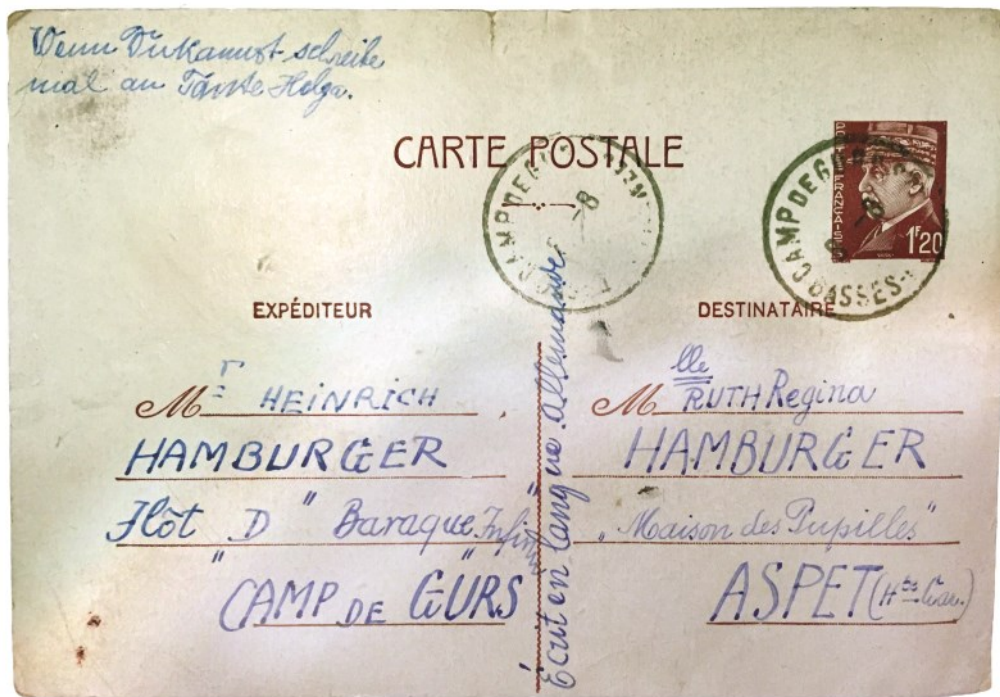 Wenn Du kannst schreibe
mal an Tante Helga.
CARTE POSTALE
POSTES FRANÇAISES
1F20
CAMP DE GU
-8
CAMP DE GU
-8
BASSES-
EXPÉDITEUR
Mr HEINRICH
HAMBURGER
Ilôt "D" Baraque "Infirm
CAMP DE GURS
Écrit en langue allemande
DESTINATAIRE
Mlle RUTH Regina
HAMBURGER
"Maison des Pupilles"
ASPET (Hte Gar.)